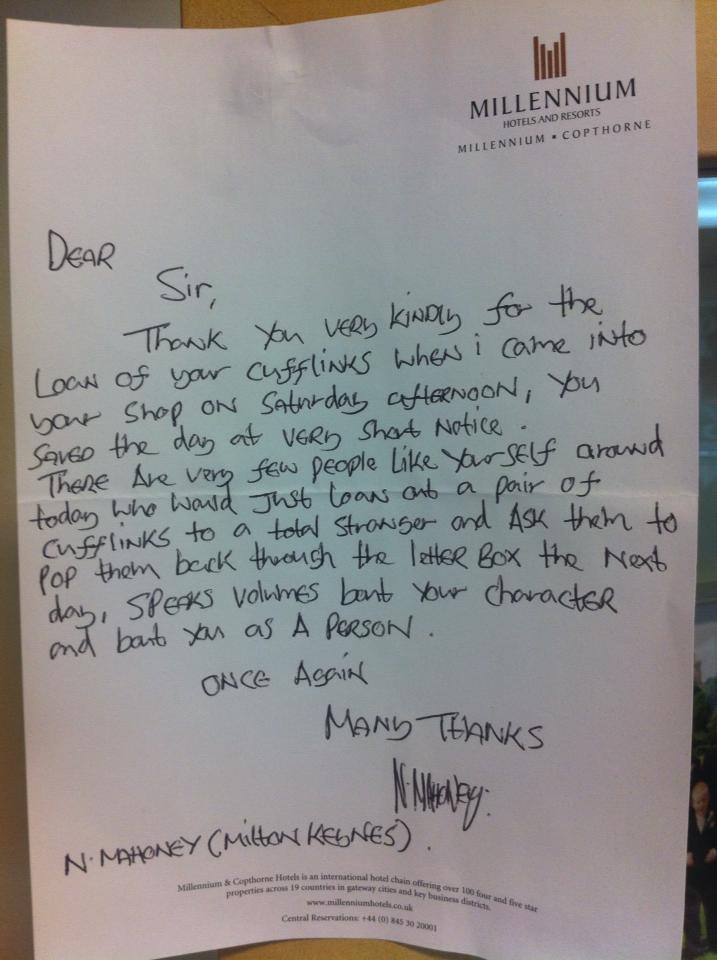 MILLENNIUM
HOTELS AND RESORTS
MILLENNIUM • COPTHORNE
DEAR
Sir,
Thank you very kindly for the
Loan of your cufflinks when i came into
your shop on Saturday afternoon, you
saved the day at very short notice.
There are very few people like yourself around
today who would just loan out a pair of
cufflinks to a total stranger and ask them to
pop them back through the letter box the next
day, speaks volumes bout your character
and bout you as a person.
Once Again
Many Thanks
N. Mahoney.
N. MAHONEY (Milton Keynes).
Millennium & Copthorne Hotels is an international hotel chain offering over 100 four and five star
properties across 19 countries in gateway cities and key business districts.
www.millenniumhotels.co.uk
Central Reservations: +44 (0) 845 30 20001